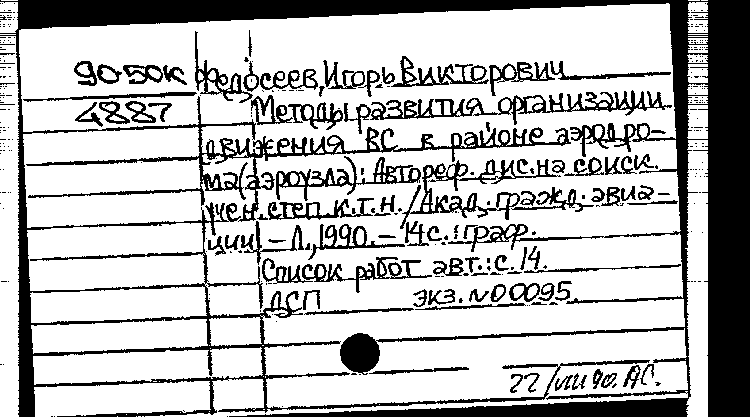 90-50к Федосеев, Игорь Викторович
4887 Методы развития организации
движения ВС в районе аэродро-
ма(аэроузла): Автореф. дис. на соиск.
учен. степ. к.т.н. / Акад. гражд. авиа-
ции. – Л., 1990. – 14 с. : граф.
Список работ авт.: с. 14.
ДСП экз. №00095.
22/VIII 90. АС.